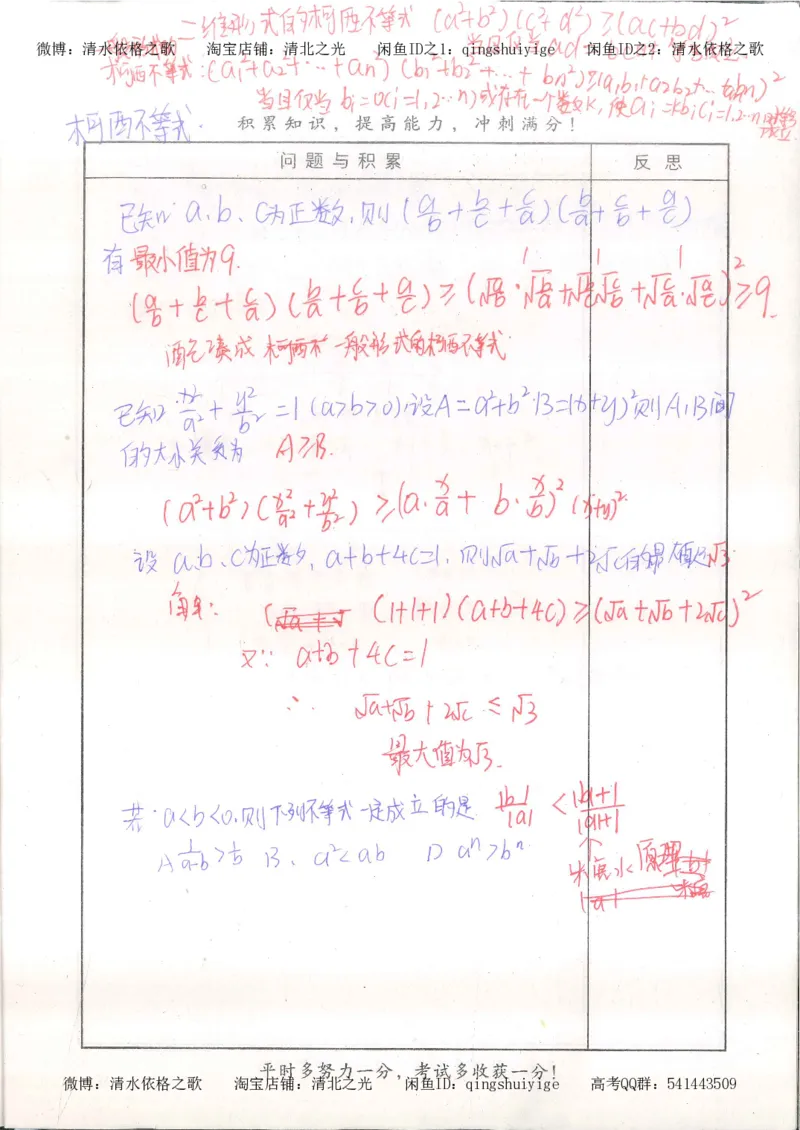 二维形式的柯西不等式 (a²+b²)(c²+d²)≥(ac+bd)²
微博：清水依格之歌 淘宝店铺：清北之光 闲鱼ID之1：qingshuiyige 闲鱼ID之2：清水依格之歌
柯西不等式:(a₁²+a₂²+…+an²)(b₁²+b₂²+…+bn²)≥(a₁b₁+a₂b₂+…+anbn)²
当且仅当bi=0(i=1,2…n)或存在一个数K,使ai=kbi(i=1,2…n)时等号成立
柯西不等式.
积累知识，提高能力，冲刺满分！
问题与积累 反思
已知a、b、c为正数,则(a/b+b/c+c/a)(b/a+c/b+a/c)
有最小值为9.
1 1 1
(a/b+b/c+c/a)(b/a+c/b+a/c)≥(√a/b·√b/a+√b/c·√c/b+√c/a·√a/c)²≥9.
配凑成 一般形式的柯西不等式
已知x²/a²+y²/b²=1(a>b>0),设A=a²+b²,B=(x+y)²则A,B间
的大小关系为 A≥B.
(a²+b²)(x²/a²+y²/b²)≥(a·x/a+b·x/b)² (x+y)²
设a、b、c为正数,a+b+4c=1,则√a+√b+2√c的最大值是√3
解: (1+1+1)(a+b+4c)≥(√a+√b+2√c)²
又∵ a+b+4c=1
∴ √a+√b+2√c≤√3
最大值为√3.
若a<b<0.则下列不等式一定成立的是 |b|/|a|<|b|+1/|a|+1
A 1/a-b>1/b B、a²<ab D aⁿ>bⁿ
↑
糖水 原理
平时多努力一分，考试多收获一分！
微博：清水依格之歌 淘宝店铺：清北之光 闲鱼ID：qingshuiyige 高考QQ群：541443509